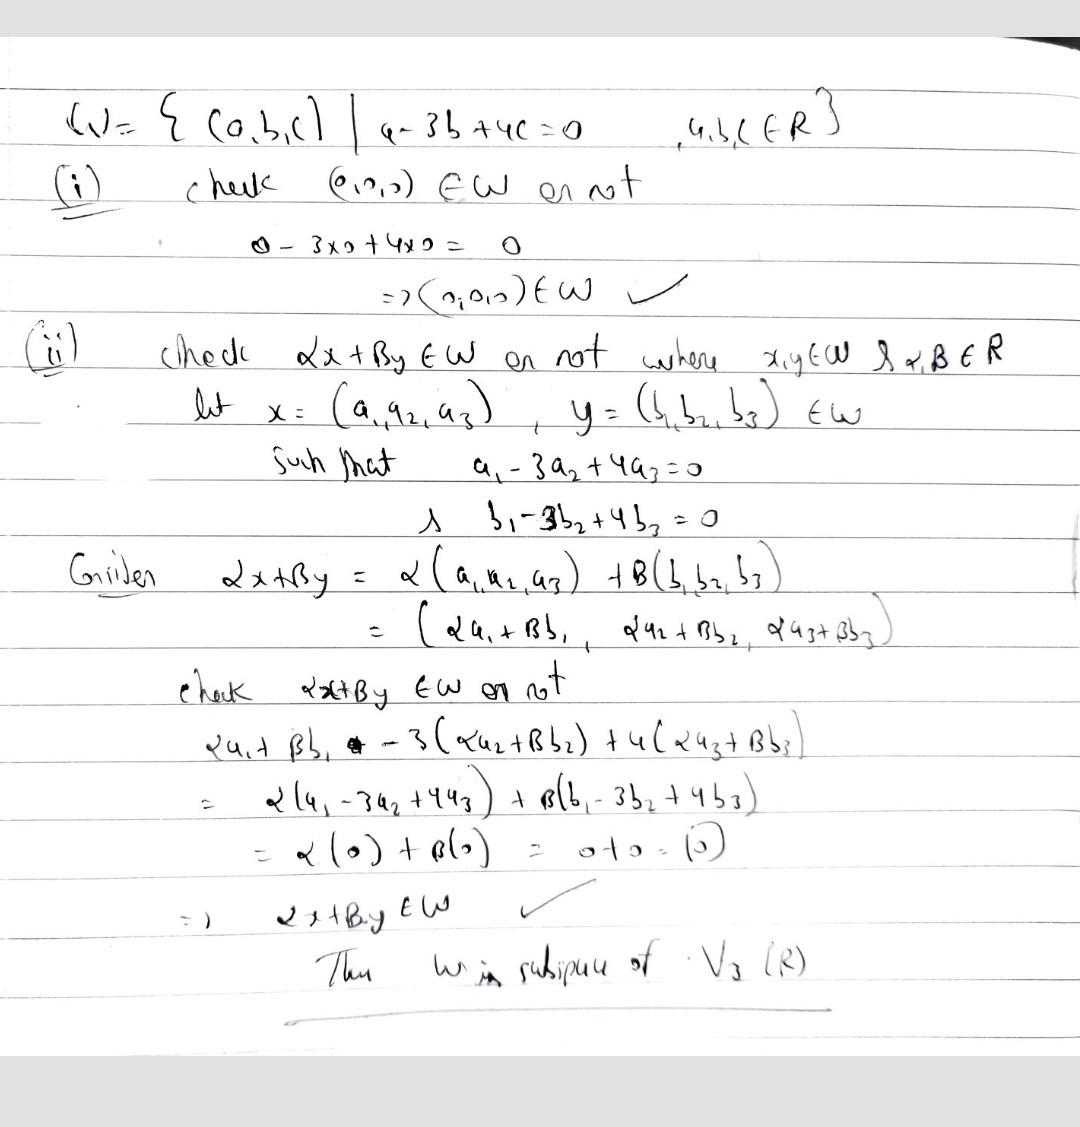 W = { (a,b,c) | a - 3b + 4c = 0 , a,b,c ∈ R }
(i) check (0,0,0) ∈ W or not
0 - 3×0 + 4×0 = 0
=> (0,0,0) ∈ W ✓
(ii) check αx + βy ∈ W or not where x,y ∈ W & α,β ∈ R
let x = (a₁, a₂, a₃) , y = (b₁, b₂, b₃) ∈ W
such that a₁ - 3a₂ + 4a₃ = 0
& b₁ - 3b₂ + 4b₃ = 0
αx + βy = α(a₁, a₂, a₃) + β(b₁, b₂, b₃)
= (αa₁ + βb₁ , αa₂ + βb₂, αa₃ + βb₃)
check αx + βy ∈ W or not
αa₁ + βb₁ - 3(αa₂ + βb₂) + 4(αa₃ + βb₃)
= α(a₁ - 3a₂ + 4a₃) + β(b₁ - 3b₂ + 4b₃)
= α(0) + β(0) = 0 + 0 = 0
=> αx + βy ∈ W ✓
Thus W is subspace of V₃(R)